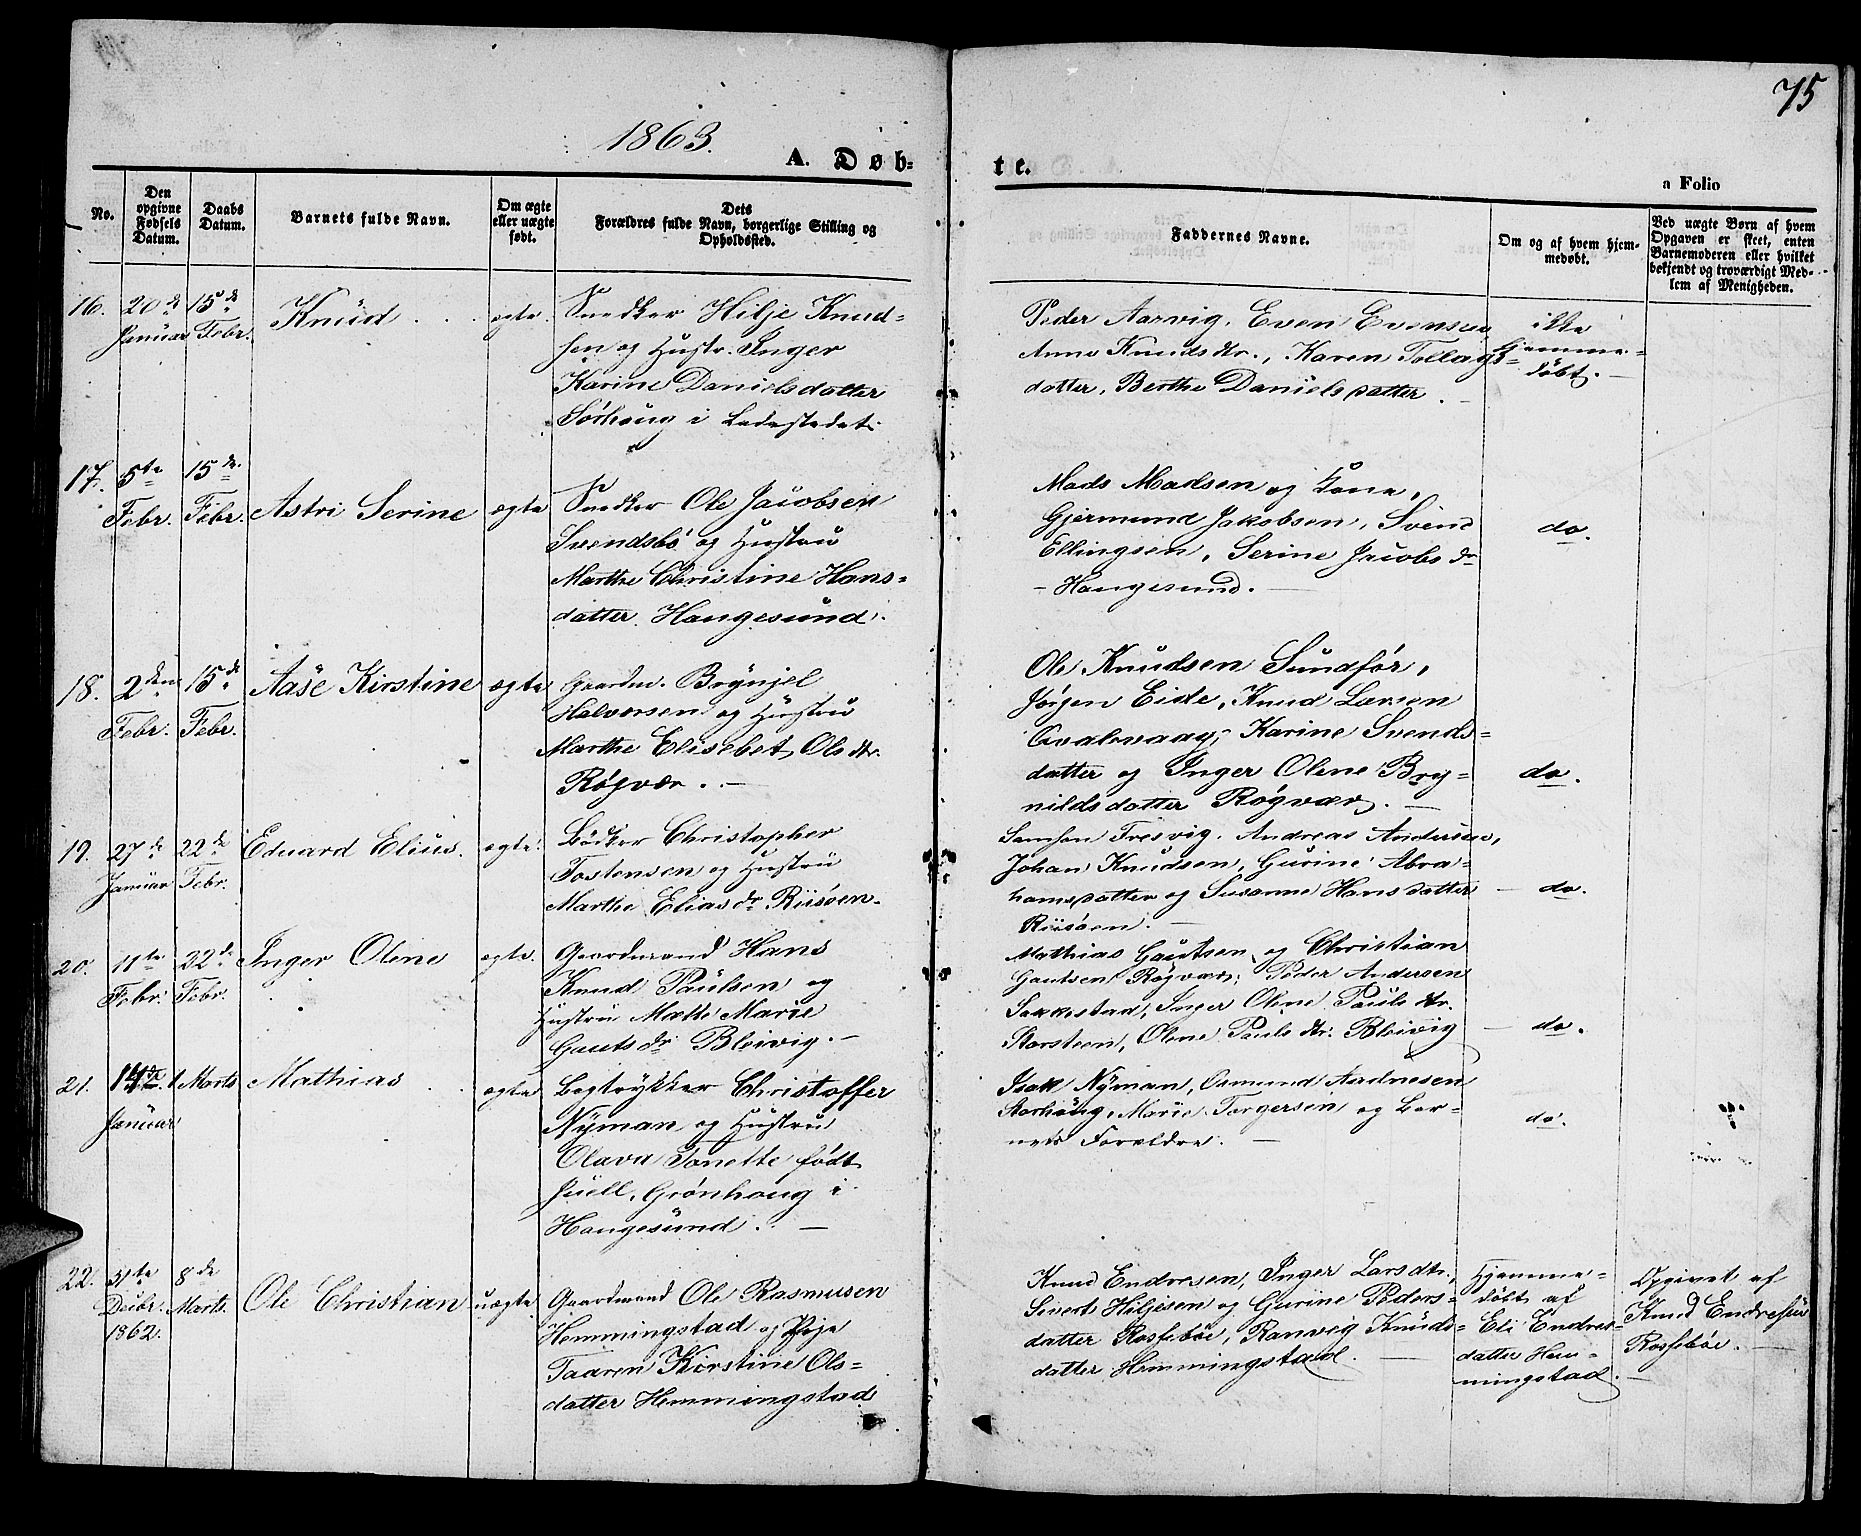 75
1863.
A. Døb-
te.
a Folio
No.
Den opgivne Fødsels Datum.
Daabs Datum.
Barnets fulde Navn.
Om ægte eller uægte født.
Dets
Forældres fulde Navn, borgerlige Stilling og
Opholdssted.
Faddernes Navne.
Om og af hvem hjem-
medøbt.
Ved uægte Børn af hvem
Opgaven er skeet, enten
Barnemoderen eller hvilket
bekjendt og troværdigt Med-
lem af Menigheden.
16.
20de
Januar
15de
Febr.
Knud
ægte.
Snedker Hilje Knud-
sen og Hustr. Inger
Karine Danielsdatter
Sørhaug i Ladestedet.
Peder Aarvig, Even Evensen
Anne Knudsdtr., Karen Tollags-
datter, Berthe Danielsdatter.
ikke
hjemme-
døbt.
17.
5te
Febr.
15de
Febr.
Astri Serine
ægte
Snedker Ole Jacobsen
Svendsbø og Hustru
Marthe Christine Hans-
datter Haugesund.
Mads Madsen og Kone,
Gjermund Jakobsen, Svend
Ellingsen, Serine Jacobsdr
- Haugesund.
do.
18.
2den
Febr.
15de
Febr.
Aase Kirstine
ægte
Gaardm. Brynjel
Halvorsen og Hustru
Marthe Elisebet Olsdtr.
Røgvær.
Ole Knudsen Sundfør,
Jørgen Eide, Knud Larsen
Qvalevaag, Karine Svends-
datter og Inger Olene Bry-
nildsdatter Røgvær.
do.
19.
27de
Januar
22de
Febr.
Eduard Elius.
ægte.
Bødker Christopher
Tostensen og Hustru
Marthe Eliasdr Riisøen.
Samson Tresvig, Andreas Andersen,
Johan Knudsen, Gurine Abra-
hamsdatter og Susanne Hansdatter
Riisøen.
do.
20.
11te
Febr.
22de
Febr.
Inger Olene
ægte.
Gaardmand Hans
Knud Paulsen og
Hustru Mette Marie
Gautsdr Bleivig.
Mathias Gautsen og Christian
Gautsen Røgvær, Peder Andersen
Sakkestad, Inger Olene Paulsdtr.
Storsteen, Olene Paulsdtr. Bleivig
do.
21.
14de
Januar
1 Marts
Mathias
ægte
Bogtrykker Christoffer
Nyman og Hustru
Olava Tonette født
Juell, Grønhaug i
Haugesund.
Isak Nyman, Osmund Aadnesen
Storhaug, Marie Torgersen og Bar-
nets Forældre.
do.
22.
31te
Decbr.
1862.
8de
Marts.
Ole Christian
uægte
Gaardmand Ole Rasmusen
Hemmingstad og Pige
Taaren Kirstine Ols-
datter Hemmingstad
Knud Endresen, Inger Larsdtr.,
Sivert Hiljesen og Gurine Peders-
datter Rossebøe, Ranveig Knuds-
datter Hemmingstad.
Hjemme-
døbt af
Eli Endres-
datter Hem-
mingstad.
Opgivet af
Knud Endresen
Rossebøe.